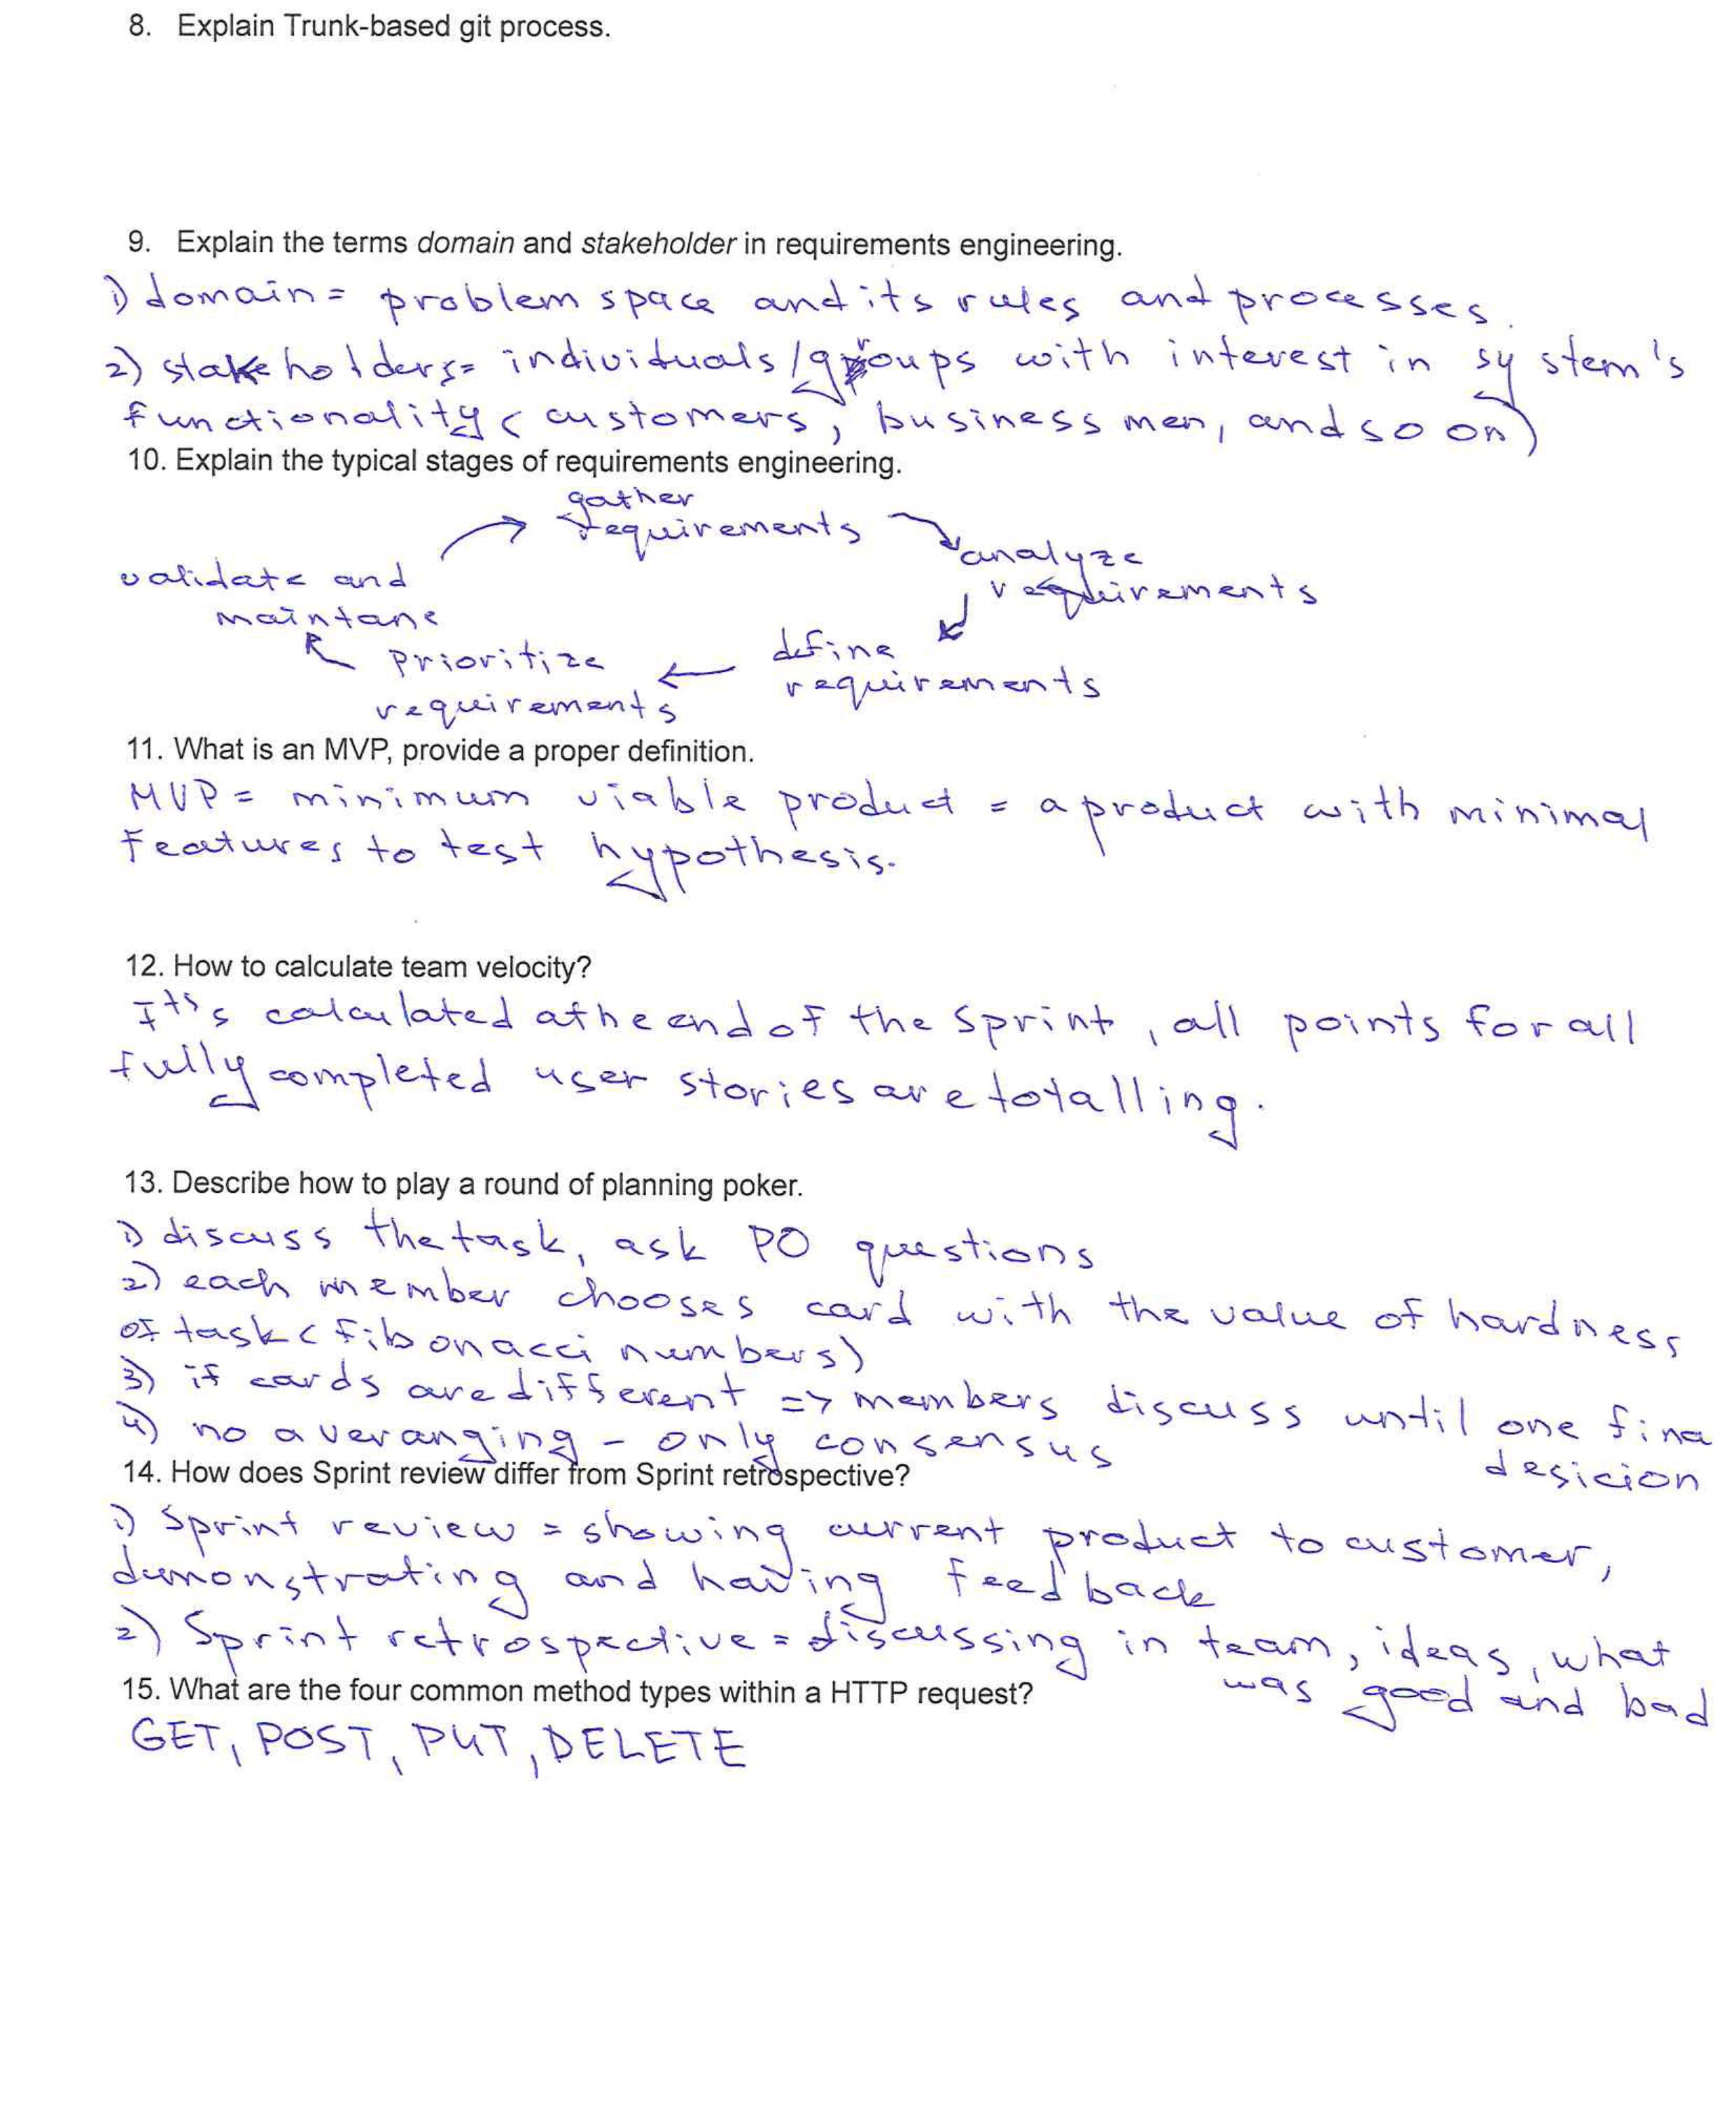 8. Explain Trunk-based git process.
9. Explain the terms domain and stakeholder in requirements engineering.
1) domain = problem space and its rules and processes.
2) stakeholders = individuals/groups with interest in system's
functionality (customers, business men, and so on)
10. Explain the typical stages of requirements engineering.
gather
requirements
analyze
requirements
validate and
maintane
define
requirements
prioritize
requirements
11. What is an MVP, provide a proper definition.
MVP = minimum viable product = a product with minimal
features to test hypothesis.
12. How to calculate team velocity?
It's calculated at he end of the sprint, all points for all
fully completed user stories are totalling.
13. Describe how to play a round of planning poker.
1) discuss the task, ask PO questions
2) each member chooses card with the value of hardness
of task (fibonacci numbers)
3) if cards are different => members discuss until one fina
desicion
4) no averanging - only consensus
14. How does Sprint review differ from Sprint retrospective?
1) Sprint review = showing current product to customer,
demonstrating and having feedback
2) Sprint retrospective = discussing in team, ideas, what
was good and bad
15. What are the four common method types within a HTTP request?
GET, POST, PUT, DELETE